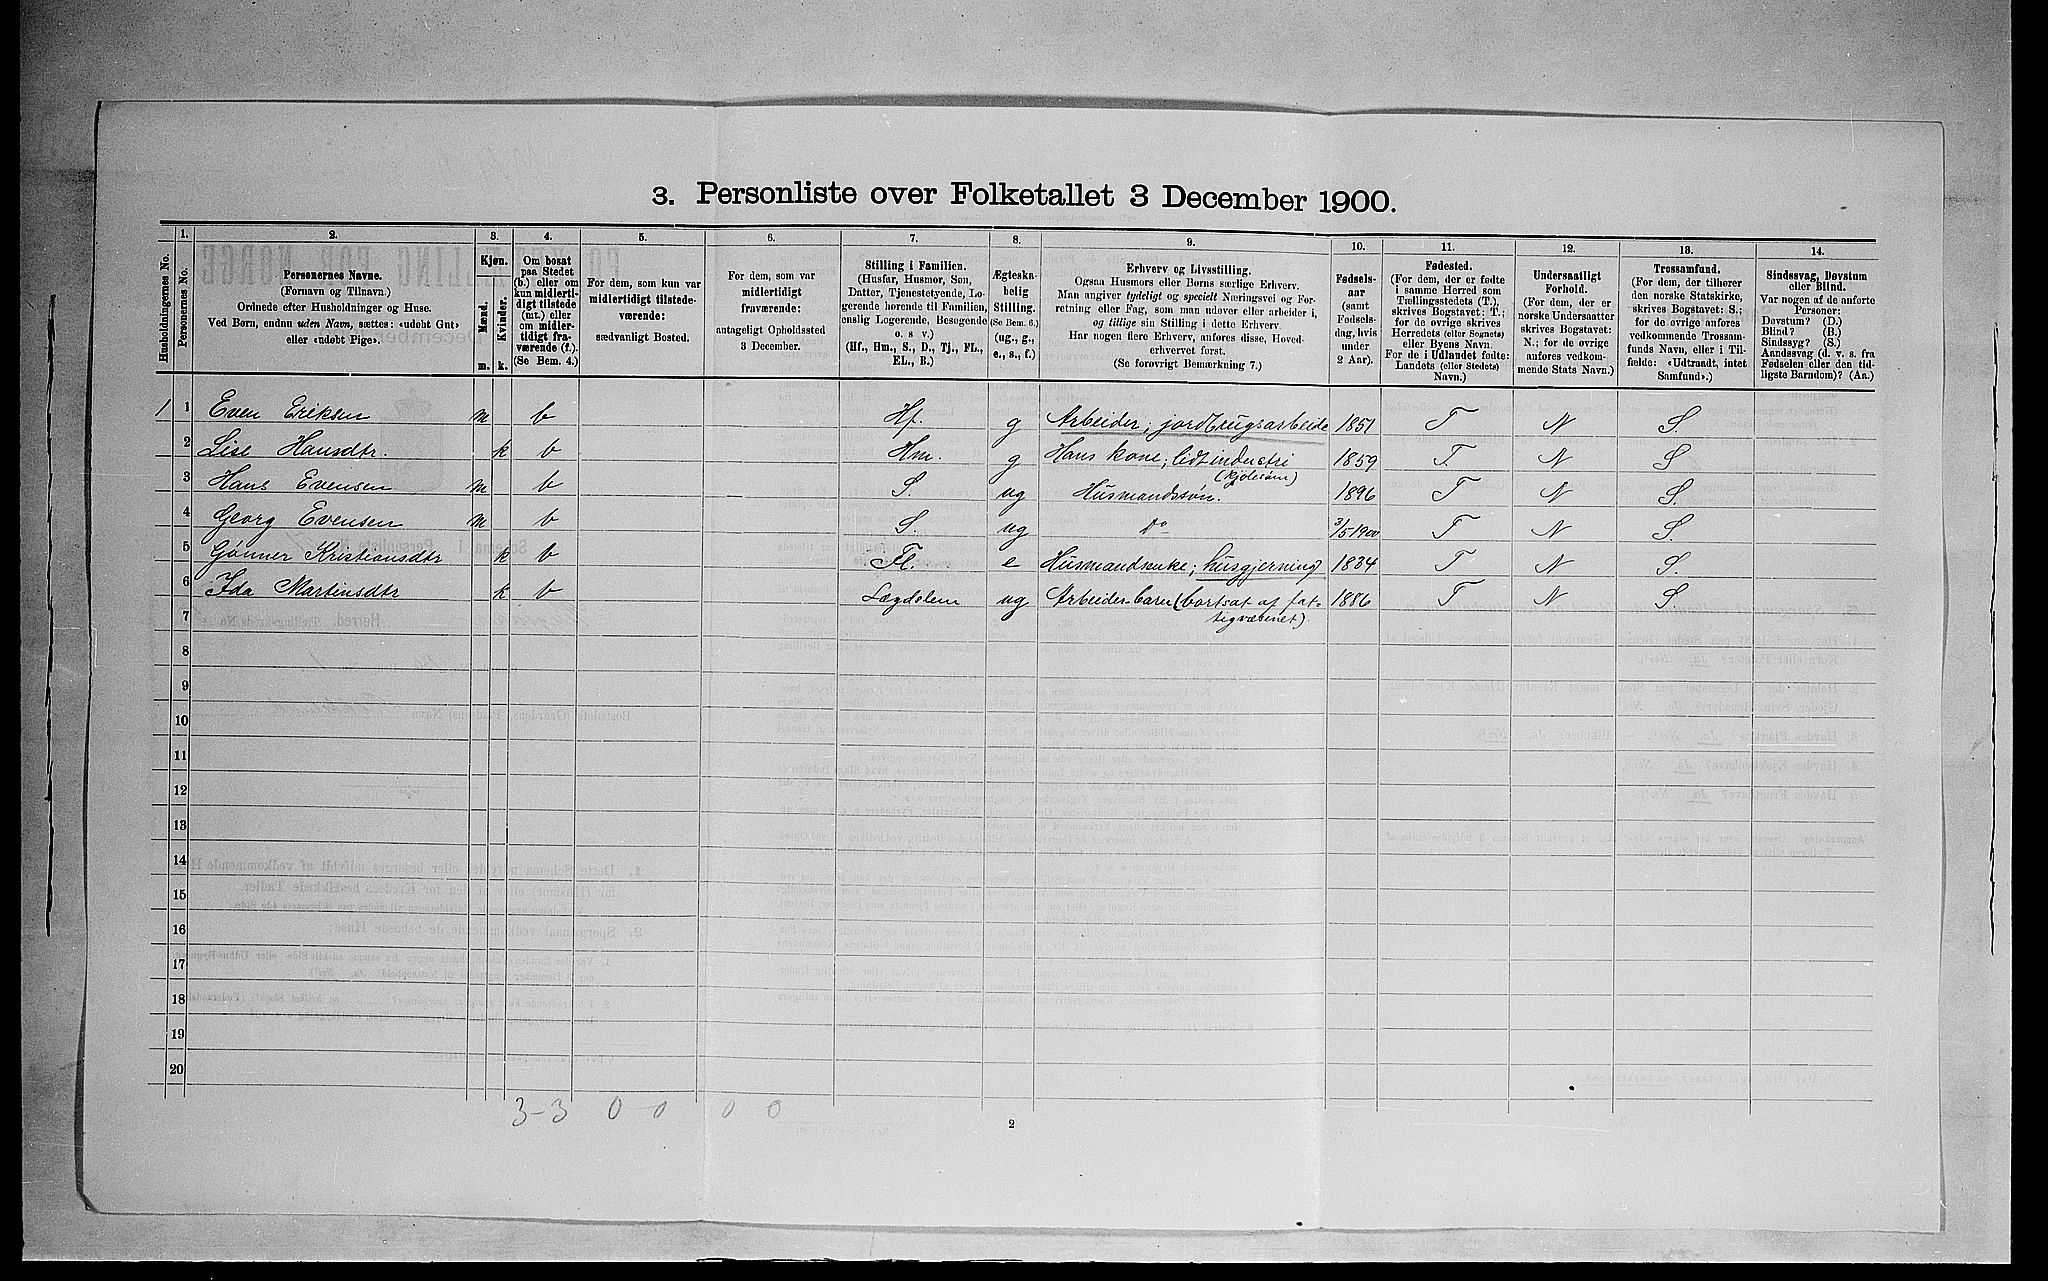 3. Personliste over Folketallet 3 December 1900.
Husholdningernes No.
1.
Personernes No.
2.
Personernes Navne.
(Fornavn og Tilnavn.)
Ordnede efter Husholdninger og Huse.
Ved Børn, endnu uden Navn, sættes: «udøbt Gut»
eller «udøbt Pige».
3.
Kjøn.
Mænd.
Kvinder.
m. k.
4.
Om bosat
paa Stedet
(b.) eller om
kun midlerti-
digt tilstede
(mt.) eller
om midler-
tidigt fra-
værende (f.).
(Se Bem. 4.)
5.
For dem, som kun var
midlertidigt tilstede-
værende:
sædvanligt Bosted.
6.
For dem, som var
midlertidigt
fraværende:
antageligt Opholdssted
3 December.
7.
Stilling i Familien.
(Husfar, Husmor, Søn,
Datter, Tjenestetyende, Lo-
gerende hørende til Familien,
enslig Logerende, Besøgende
o. s v.)
(Hf., Hm., S., D., Tj., FL.,
EL., B.)
8.
Ægteska-
belig
Stilling.
(Se Bem. 6.)
(ug., g.,
e., s., f.)
9.
Erhverv og Livsstilling.
Ogsaa Husmors eller Børns særlige Erhverv.
Man angiver tydeligt og specielt Næringsvei og For-
retning eller Fag, som man udøver eller arbeider i,
og tillige sin Stilling i dette Erhverv.
Har nogen flere Erhverv, anføres disse, Hoved-
erhvervet først.
(Se forøvrigt Bemærkning 7.)
10.
Fødsels-
aar
(samt
Fødsels-
dag, hvis
under
2 Aar).
11.
Fødested.
(For dem, der er fødte
i samme Herred som
Tællingsstedets (T.),
skrives Bogstavet: T.;
for de øvrige skrives
Herredets (eller Sognets)
eller Byens Navn.
For de i Udlandet fødte:
Landets (eller Stedets)
Navn.)
12.
Undersaatligt
Forhold.
(For dem, der er
norske Undersaatter
skrives Bogstavet:
N.; for de øvrige
anføres vedkom-
mende Stats Navn.)
13.
Trossamfund.
(For dem, der tilhører
den norske Statskirke,
skrives Bogstavet: S.;
for de øvrige anføres
vedkommende Trossam-
funds Navn, eller i Til-
fælde: «Udtraadt, intet
Samfund».)
14.
Sindssvag, Døvstum
eller Blind.
Var nogen af de anførte
Personer:
Døvstum? (D.)
Blind? (B.)
Sindssyg? (S.)
Aandssvag (d. v. s. fra
Fødselen eller den tid-
ligste Barndom)? (Aa.)
1 1 Even Eriksen m b Hf. g Arbeider; jordbrugsarbeide 1851 T N S.
2 Lise Hansdtr. k b Hm. g Hans kone; lidt industri (kjolesøm) 1859 T. N S
3 Hans Evensen m b S. ug Husmandssøn. 1896 T N S.
4 Georg Evensen m b S. ug Do 3/5 1900 T N S.
5 Gønner Kristiansdtr k b Fl. e Husmandsenke; husgjerning 1834 T N S.
6 Ida Martinsdtr k b Lægdslem ug Arbeider-barn (bortsat af fat-
tigvæsenet). 1886 T N S.
7
8
9
10
11
12
13
14
15
16
17
18
19
20
3-3 0 - 0 0 0
2